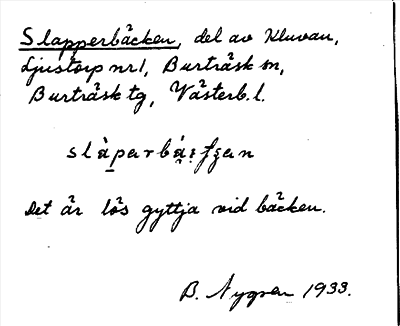 Slapperbäcken, del av Kluvan,
Ljustorp nr1, Burträsk sn,
Burträsk tg, Västerb. l.
Det är lös gyttja vid bäcken.
B. Nygren 1933.